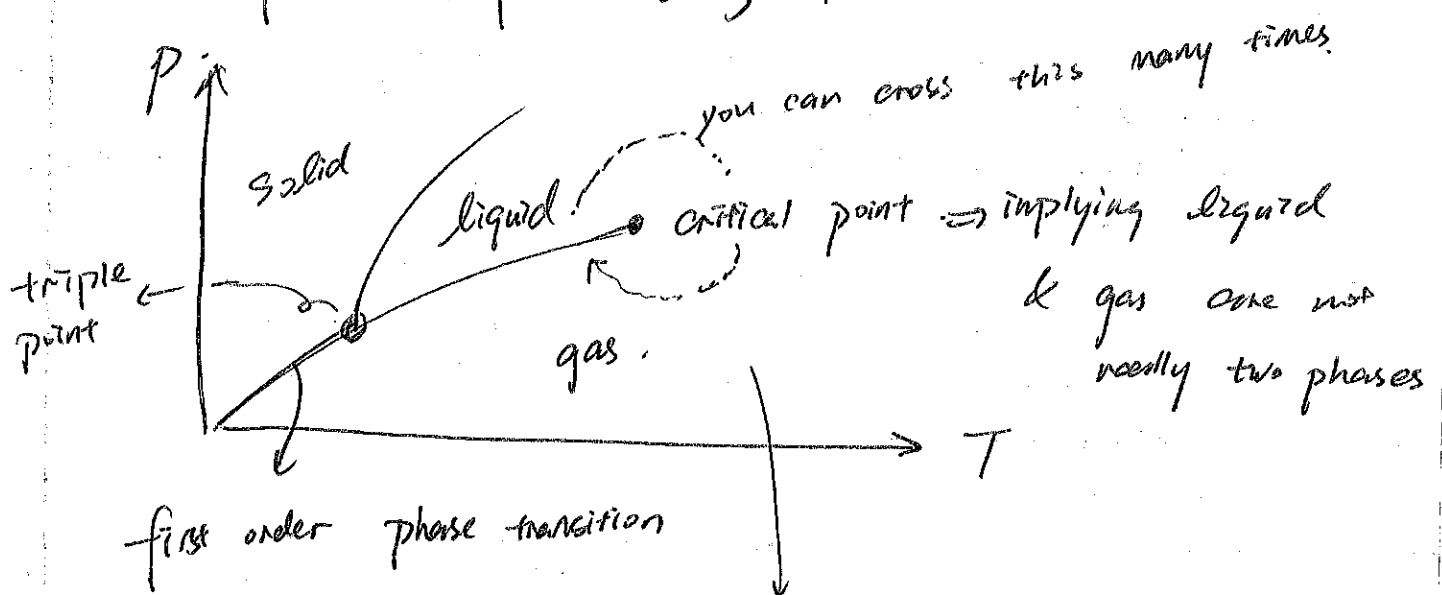 P
you can cross this many times.
solid
liquid
critical point ⇒ implying liquid
& gas are not
really two phases
triple
point
gas.
T
first order phase transition